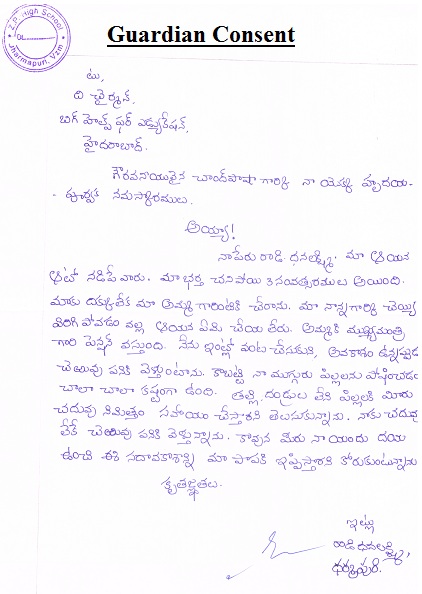 Z.P. High School
DL
Dharmapuri, Vzm
Guardian Consent
టు,
ది ఛైర్మన్,
బిగ్ హెల్ప్ ఫర్ ఎడ్యుకేషన్,
హైదరాబాద్.
గౌరవనీయులైన చాంద్‌పాషా గార్కి నా యొక్క హృదయ-
- పూర్వక నమస్కారములు.
అయ్యా!
నాపేరు రాడి ధనలక్ష్మి. మా ఆయన
ఆటో నడిపేవారు. మా భర్త చనిపోయి 3 సంవత్సరములు అయింది.
మాకు దిక్కులేక మా అమ్మగారింటికి చేరాను. మా నాన్నగార్కి చెయ్యి
విరిగి పోవడం వల్ల ఆయన ఏమి చేయలేరు. అమ్మకి ముఖ్యమంత్రి
గారి పెన్షన్ వస్తుంది. నేను ఇంట్లో వంట చేసుకుని, అవకాశం ఉన్నప్పుడు
చెఱువు పనికి వెళ్తుంటాను. కాబట్టి నా ముగ్గురు పిల్లలను పోషించడం
చాలా చాలా కష్టంగా ఉంది. తల్లి, దండ్రుల లేని పిల్లలకి మీరు
చదువు నిమిత్తం సహాయం చేస్తారని తెలుసుకున్నాను. నాకు చదువు
లేక చెఱువు పనికి వెళ్తున్నాను. కావున మీరు నాయందు దయ
ఉంచి ఈ సదావకాశాన్ని మా పాపకి ఇప్పిస్తారని కోరుకుంటున్నాను
కృతజ్ఞతలు.
ఇట్లు
రాడి ధనలక్ష్మి,
ధర్మపురి.